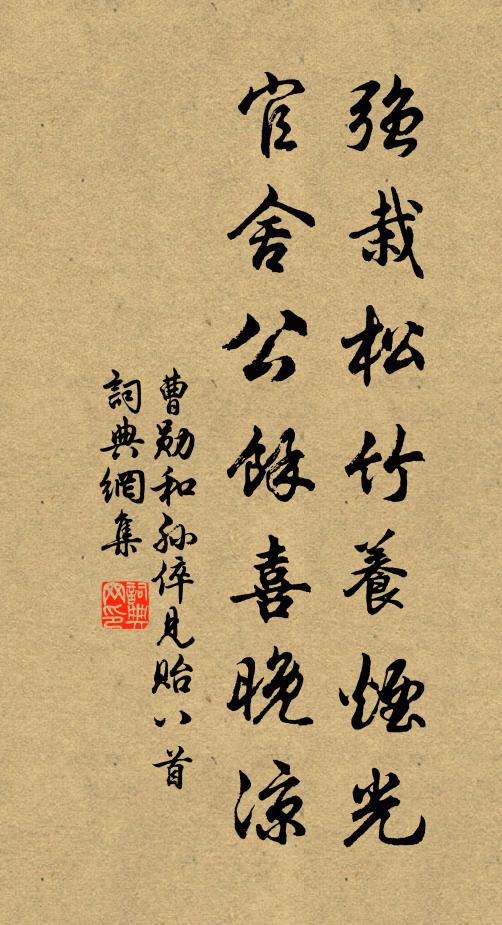 強栽松竹養煙光
官舍公餘喜晚涼
曹勛和孫倅見貽八首
詞典網集
詞典網印